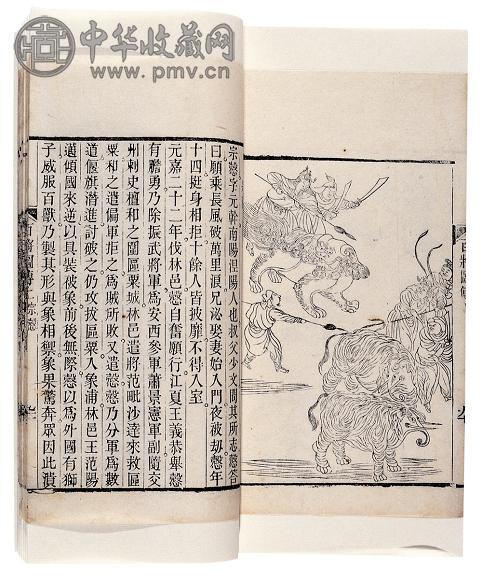 中华收藏网
www.pmv.cn
宗慤字元幹南陽涅陽人也叔父少文問其所志慤答
曰願乘長風破萬里浪兄泌娶妻始入門夜被劫慤年
十四挺身相拒十餘人皆披靡不得入室
元嘉二十二年伐林邑慤自奮願行江夏王義恭舉慤
有膽勇乃除振武將軍爲安西參軍蕭景憲軍副隨交
州刺史檀和之圍區粟城林邑遣將范毗沙達來救區
粟和之遣偏軍拒之爲賊所敗又遣慤慤乃分軍爲數
道偃旗潛進討破之仍攻拔區粟入象浦林邑王范陽
邁傾國來逆以具裝被象前後無際慤以爲外國有獅
子威服百獸乃製其形與象相禦象果驚奔眾因此潰
百將圖傳 宗慤